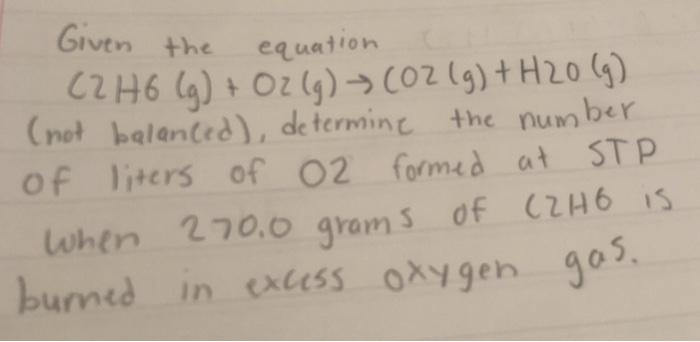 Given the equation
C2H6 (g) + O2 (g) → CO2 (g) + H2O (g)
(not balanced), determine the number
of liters of O2 formed at STP
when 270.0 grams of C2H6 is
burned in excess oxygen gas.